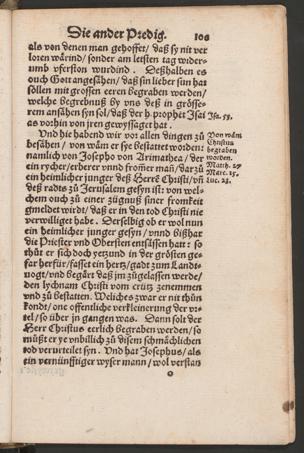 Die ander Predig. 106
als von denen man gehoffet/ daß sy nit ver
loren wärind/ sonder am letsten tag wider-
umb vferston wurdind. Deßhalben es
ouch Gott angesähen/ daß sin lieber sun hat
söllen mit grossen eeren begraben werden/
welche begrebnuß by vns deß in grösse-
rem ansähen sy sol/ daß der h. prophet Jsai Jsa. 53.
as vorhin von jren gewyssaget hat.
Vnd hie habend wir vor allen dingen zů Von wäm
besähen/ von wäm er sye bestattet worden: Christus
begraben
namlich von Josepho von Arimathea/ der worden.
ein rycher/ erberer vnnd frommer man/ dar zů Matth. 27.
Marc. 15.
ein heimlicher junger deß Herrē Christi/ vñ Luc. 23.
deß radts zů Jerusalem gesyn ist: von wel-
chem ouch zů einer zügnuß siner fromkeit
gmeldet wirdt/ daß er in den tod Christi nie
verwilliget habe. Derselbig ob er wol nun
ein heimlicher junger gesyn/ vnnd bißhar
die Priester vnd Obersten entsässen hatt: so
thůt er sich doch yetzund in der grösten ge-
far herfür/ fasset ein hertz/ gadt zum Landt-
uogt/ vnd begärt daß jm zůgelassen werde/
den lychnam Christi vom crütz zenemmen
vnd zů bestatten. Weliches zwar er nit thůn
kondt/ one offentliche verkleinerung der vr-
tel/ so über jn gangen was. Dann solt der
Herr Christus eerlich begraben werden/ so
můßt er ye vnbillich zů disem schmächlichen
tod verurteilet syn. Vnd hat Josephus/ als
ein vernünfftiger wyser mann/ wol verstan
o